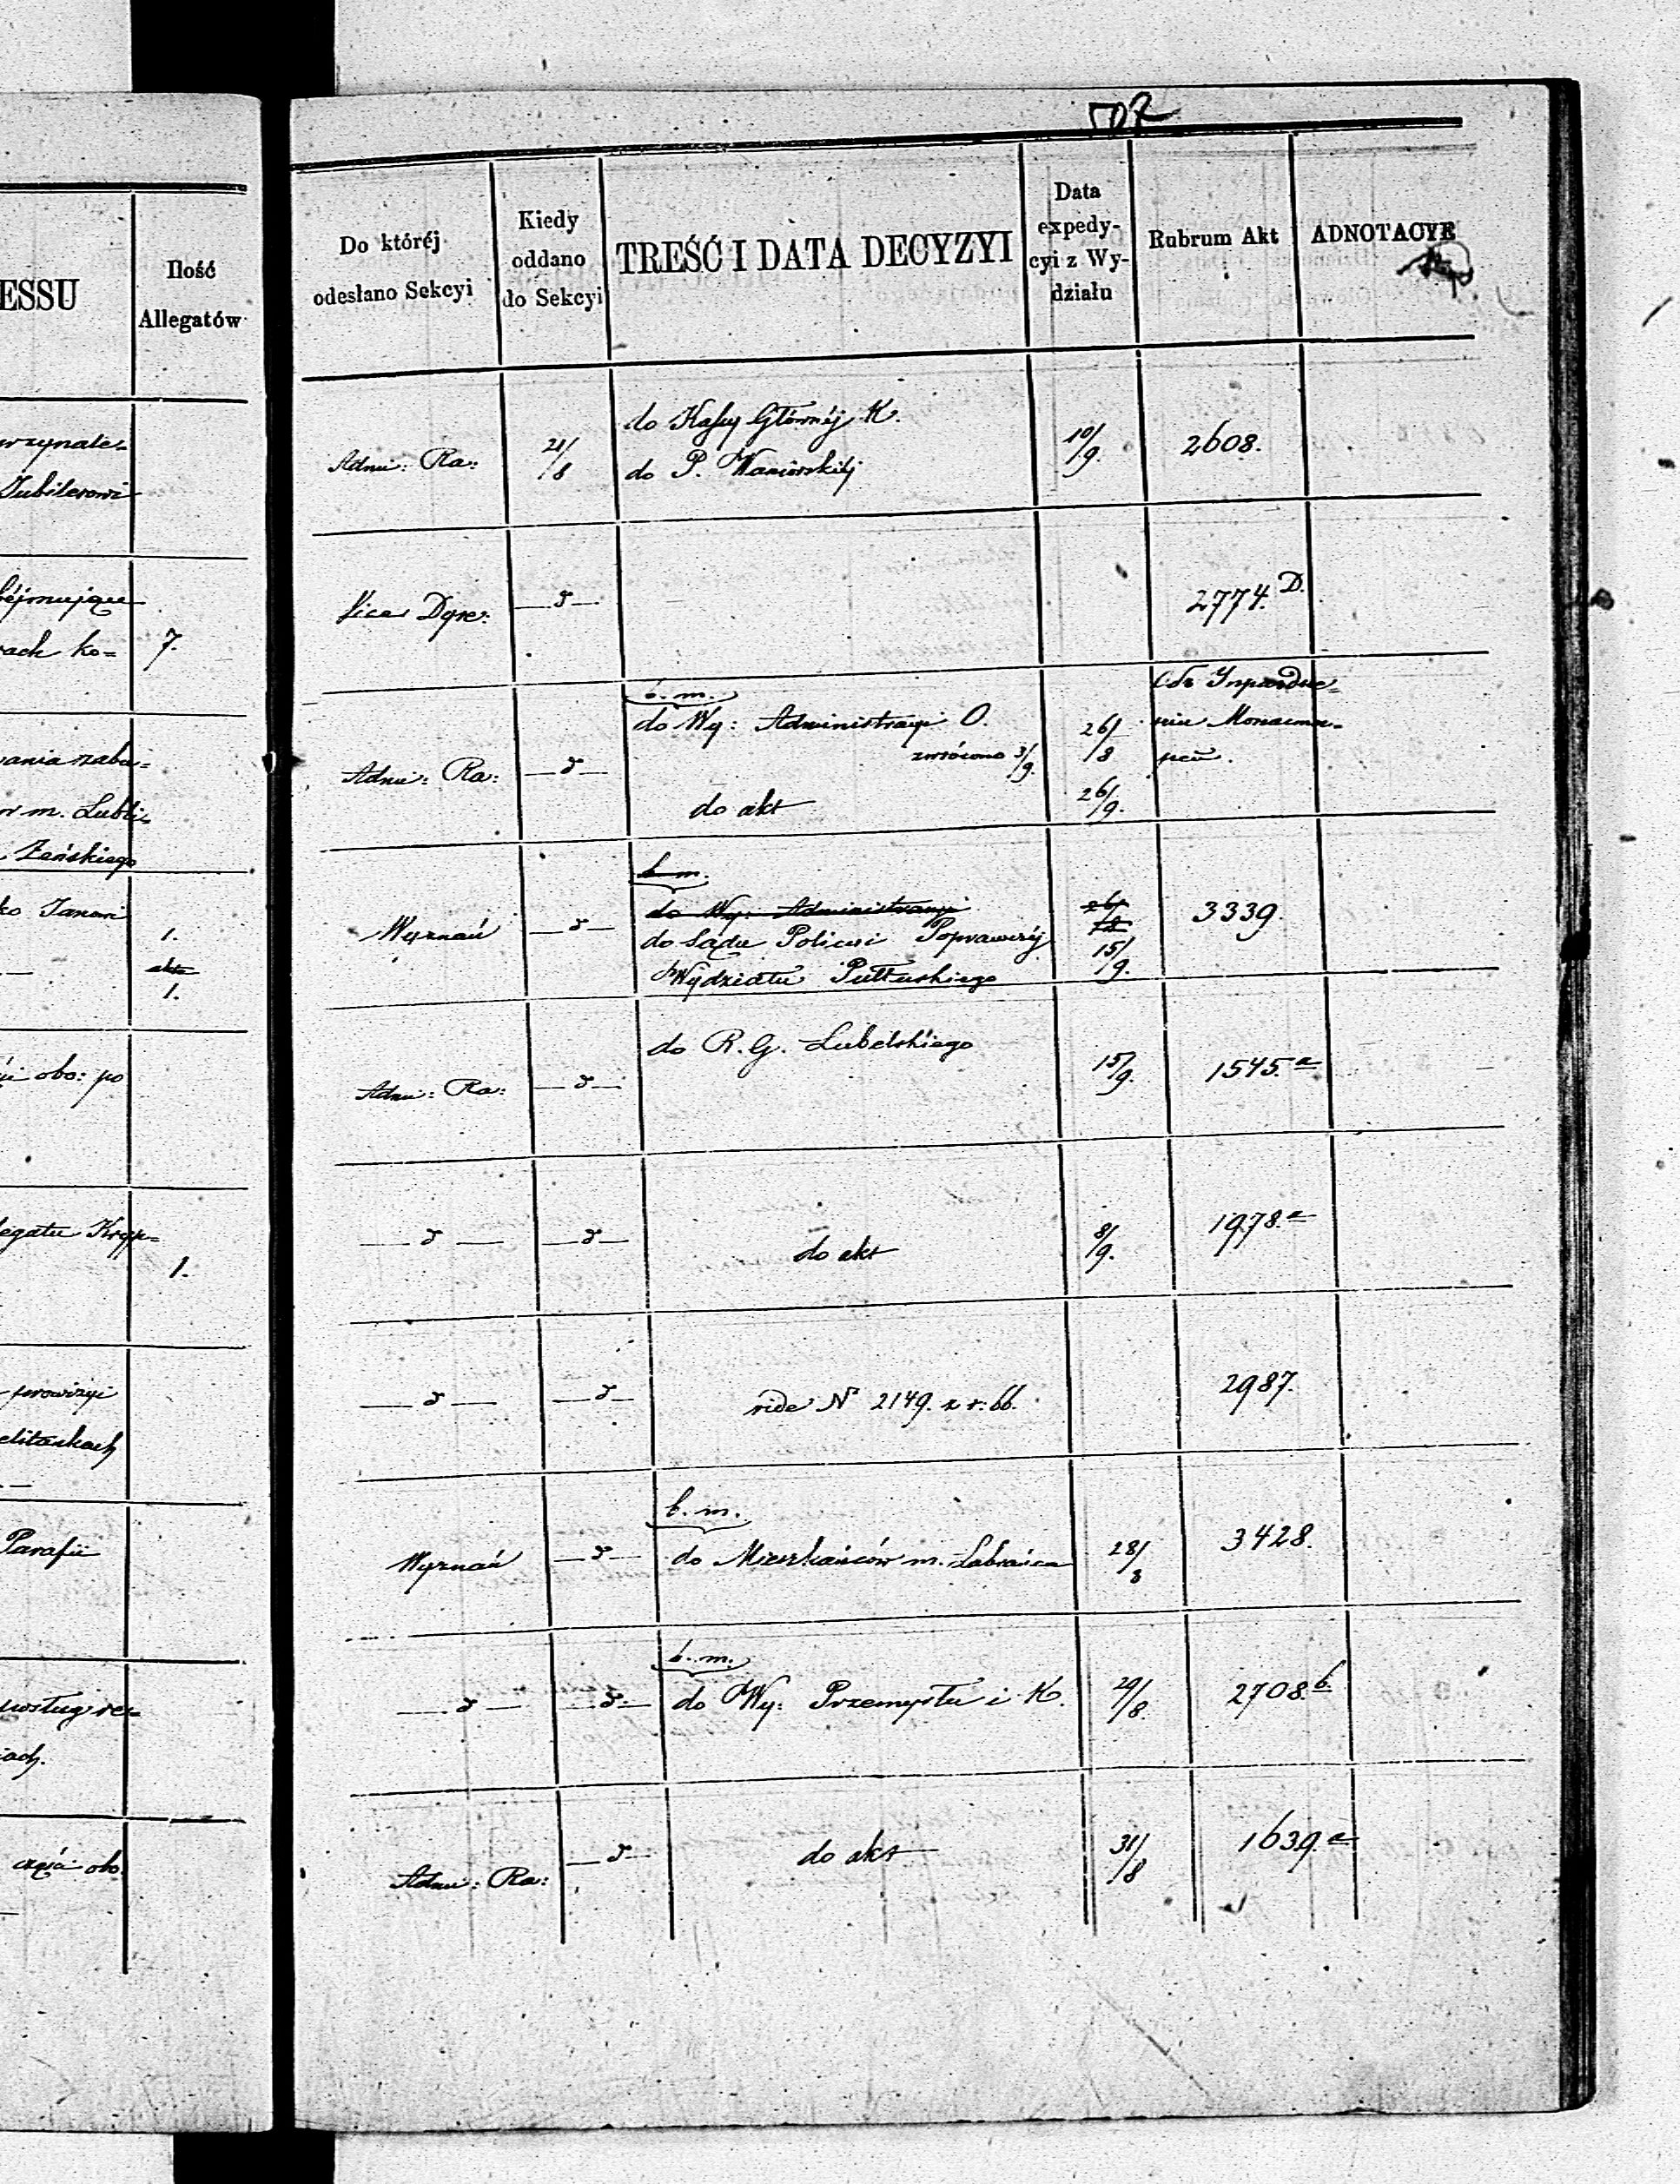 507
ESSU
Ilość
Allegatów
Do któréj
odesłano Sekcyi
Kiedy
oddano
do Sekcyi
TREŚĆ I DATA DECYZYI
Data
expedy-
cyi z Wy-
działu
Rubrum Akt
ADNOTACYE
Jubilerowi
Adm: Ra:
21/8
do Kassy Głównéj K.
do P.
10/9.
2608.
ach ko=
7.
Vice Dyre:
— d —
2774. D.
wania zabu=
w m. Lubli-
Żeńskiego
Adm: Ra:
— d —
b. m.
do Wy: Administracyi O.
zwrócono 3/9.
do akt
26/8
26/9.
1.
akta
1.
Wyznań
— d —
b. m.
do Wy: Administracyi
do Sądu Policyi Poprawczéj
Wydziału Pułtuskiego
26/8
15/9.
3339.
obo: po
Adm: Ra:
— d —
do R. G. Lubelskiego
15/9.
1545. a
legatu Kryp=
1.
— d —
— d —
do akt
8/9.
1978. a
prowizyi
— d —
— d —
vide N° 2149. z r: 66.
2987.
Parafii
Wyznań
— d —
b. m.
do Mieszkańców m.
28/8
3428.
— d —
— d —
b. m.
do Wy: Przemysłu i K.
29/8.
2708. b
część obo.
Adm: Ra:
— d —
do akt
31/8
1639. a